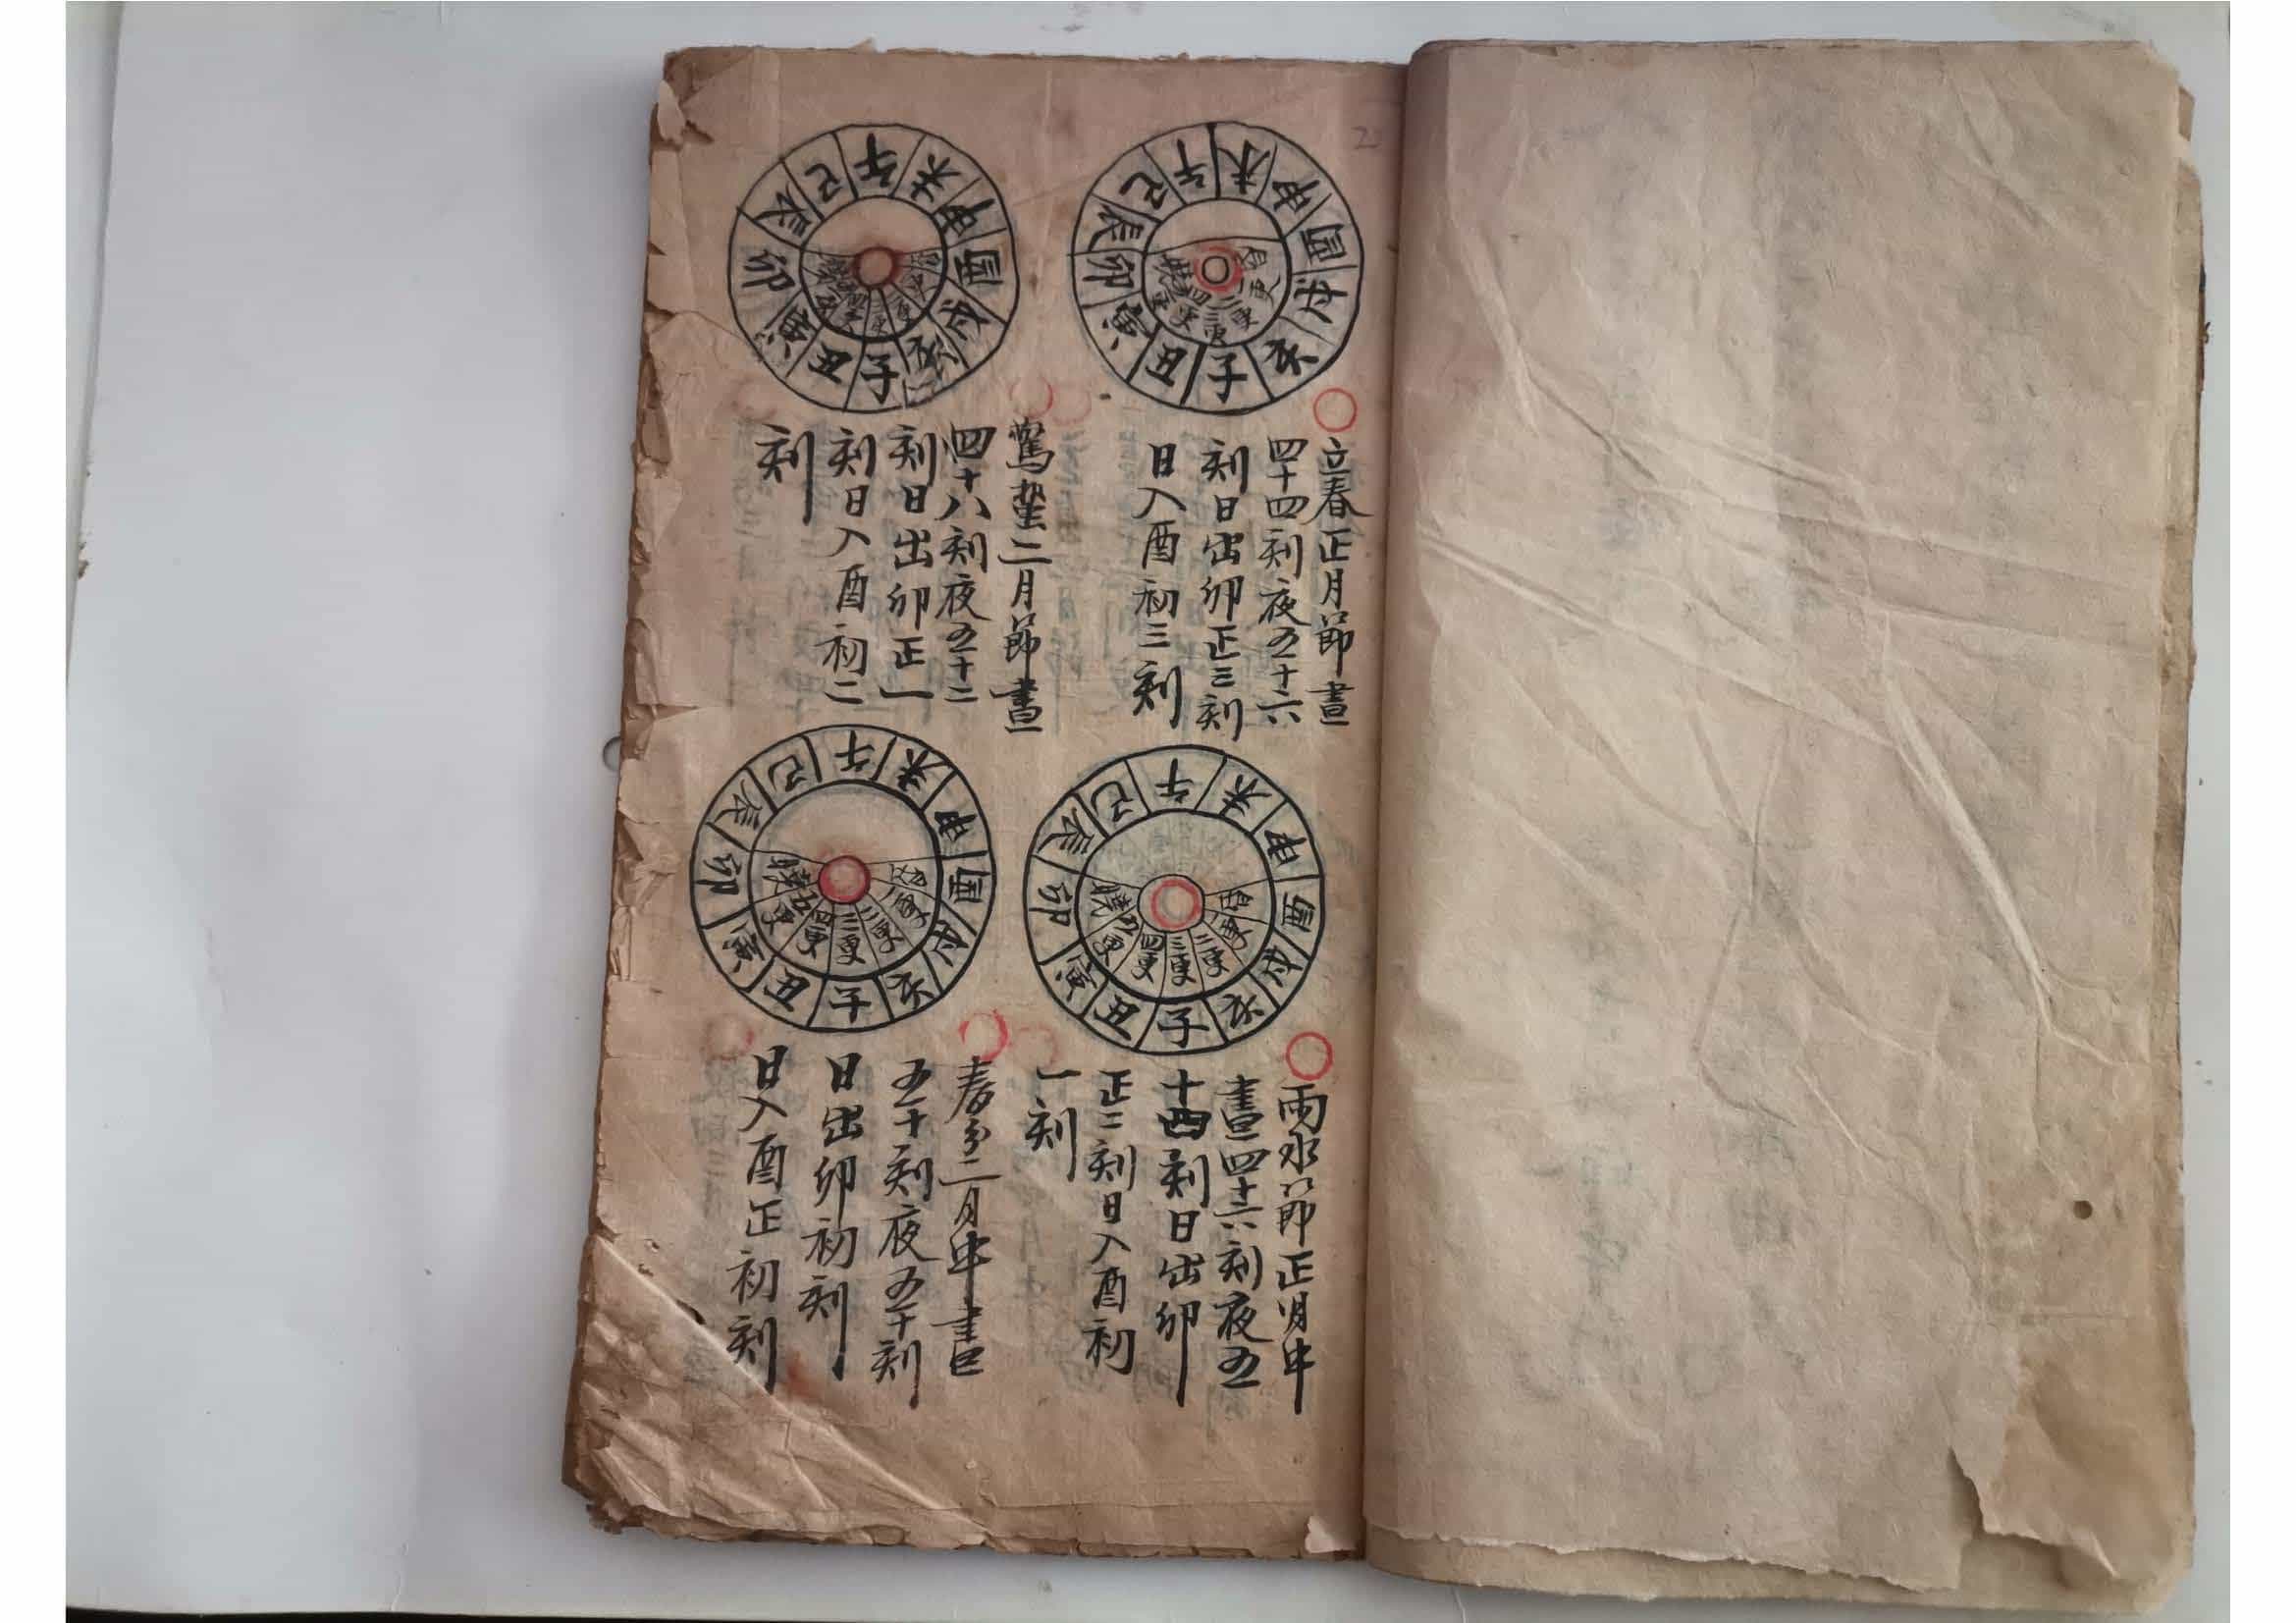 午未申酉戌亥子丑寅卯辰巳
昏一更二更三更四更五更曉
立春正月節晝
四十四刻夜五十六
刻日出卯正三刻
日入酉初三刻
午未申酉戌亥子丑寅卯辰巳
驚蟄二月節晝
四十八刻夜五十二
刻日出卯正一
刻日入酉初二
刻
午未申酉戌亥子丑寅卯辰巳
昏一更二更三更四更五更曉
雨水節正月中
晝四十六刻夜五
十四刻日出卯
正二刻日入酉初
一刻
午未申酉戌亥子丑寅卯辰巳
昏一更二更三更四更五更曉
春分二月中晝
五十刻夜五十刻
日出卯初刻
日入酉正初刻